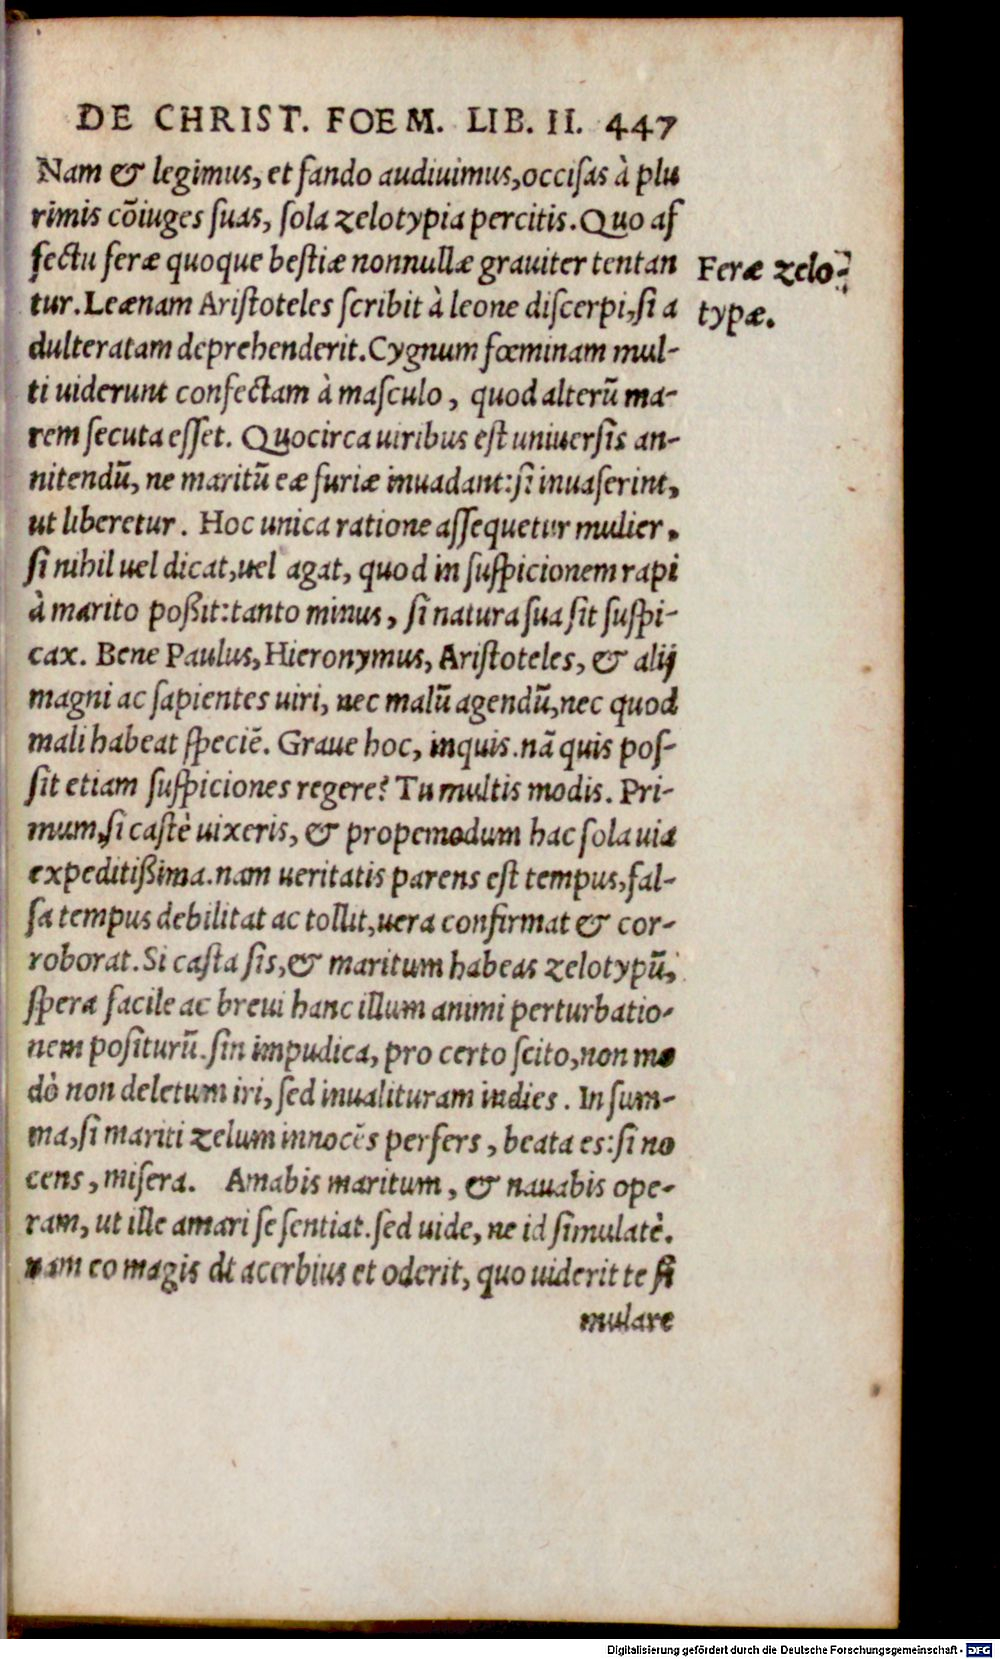 DE CHRIST. FOEM. LIB. II. 447
Nam & legimus, et fando audiuimus, occisas à plu
rimis cōiuges suas, sola zelotypia percitis. Quo af
fectu feræ quoque bestiæ nonnullæ grauiter tentan
tur. Leænam Aristoteles scribit à leone discerpi, si a
dulteratam deprehenderit. Cygnum fœminam mul-
ti uiderunt confectam à masculo, quod alterū ma-
rem secuta esset. Quocirca uiribus est uniuersis an-
nitendū, ne maritū eæ furiæ inuadant: si inuaserint,
ut liberetur. Hoc unica ratione assequetur mulier,
si nihil uel dicat, uel agat, quod in suspicionem rapi
à marito poßit: tanto minus, si natura sua sit suspi-
cax. Bene Paulus, Hieronymus, Aristoteles, & alij
magni ac sapientes uiri, nec malū agendū, nec quod
mali habeat speciē. Graue hoc, inquis. nā quis pos-
sit etiam suspiciones regere? Tu multis modis. Pri-
mum, si castè uixeris, & propemodum hac sola uia
expeditißima. nam ueritatis parens est tempus, fal-
sa tempus debilitat ac tollit, uera confirmat & cor-
roborat. Si casta sis, & maritum habeas zelotypū,
spera facile ac breui hanc illum animi perturbatio-
nem positurū. sin impudica, pro certo scito, non mo
dò non deletum iri, sed inualituram indies. In sum-
ma, si mariti zelum innocēs perfers, beata es: si no
cens, misera. Amabis maritum, & nauabis ope-
ram, ut ille amari se sentiat. sed uide, ne id simulatè.
nam eo magis et acerbius et oderit, quo uiderit te si
mulare
Feræ zelo-
typæ.
Digitalisierung gefördert durch die Deutsche Forschungsgemeinschaft - DFG